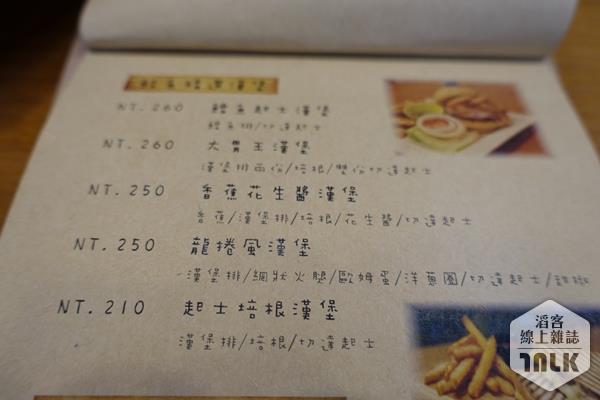 NT. 260 鱈魚起士漢堡
鱈魚排/切達起士
NT. 260 大胃王漢堡
漢堡排兩份/培根/雙份切達起士
NT. 250 香蕉花生醬漢堡
香蕉/漢堡排/培根/花生醬/切達起士
NT. 250 龍捲風漢堡
漢堡排/網狀火腿/歐姆蛋/洋蔥圈/切達起士/
NT. 210 起士培根漢堡
漢堡排/培根/切達起士
滔客
線上雜誌
TALK